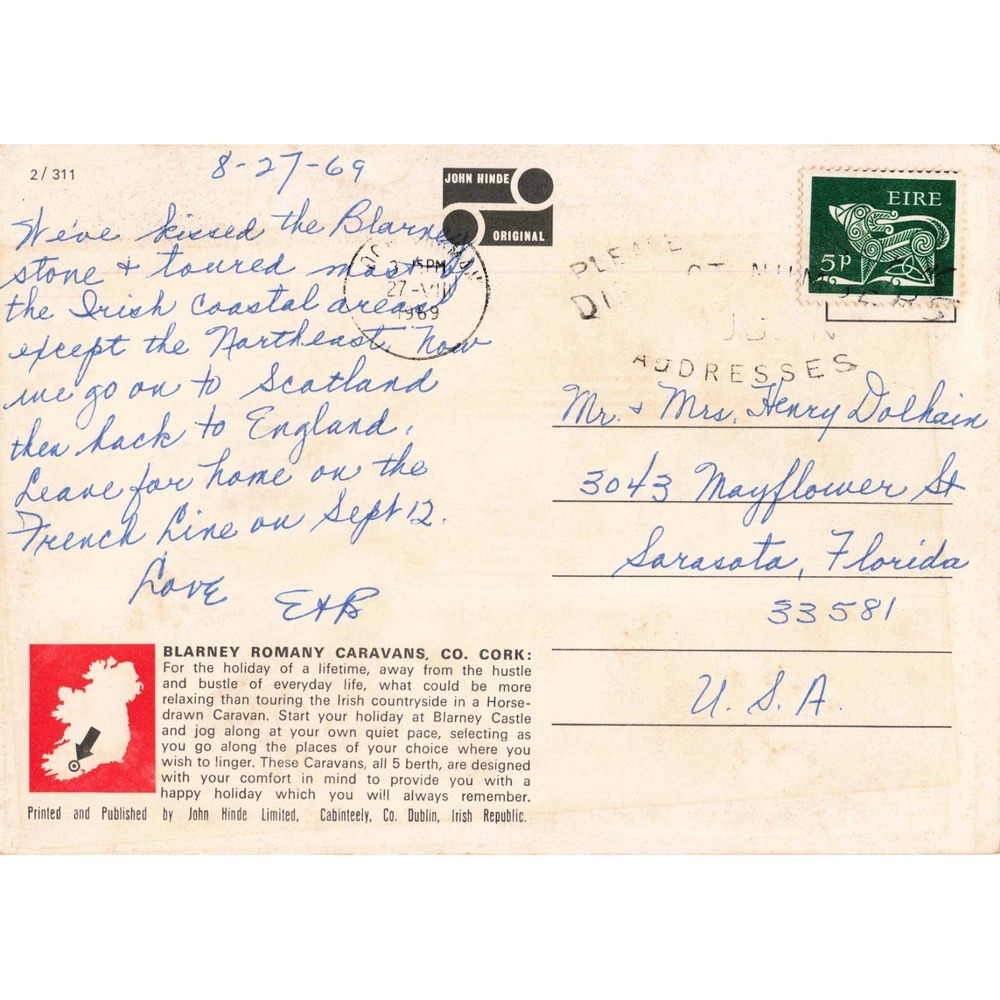 2/311
8-27-69
JOHN HINDE
ORIGINAL
We've kissed the Blarney
stone & toured most of
the Irish coastal areas
except the Northeast. Now
we go on to Scotland
then back to England.
Leave for home on the
French Line on Sept 12.
Love
E&B
3 15PM
27-VIII
1969
EIRE
5p
PLEASE
ADDRESSES
Mr. & Mrs. Henry Dolhain
3043 Mayflower St
Sarasota, Florida
33581
U.S.A.
BLARNEY ROMANY CARAVANS, CO. CORK:
For the holiday of a lifetime, away from the hustle
and bustle of everyday life, what could be more
relaxing than touring the Irish countryside in a Horse-
drawn Caravan. Start your holiday at Blarney Castle
and jog along at your own quiet pace, selecting as
you go along the places of your choice where you
wish to linger. These Caravans, all 5 berth, are designed
with your comfort in mind to provide you with a
happy holiday which you will always remember.
Printed and Published by John Hinde Limited, Cabinteely, Co. Dublin, Irish Republic.